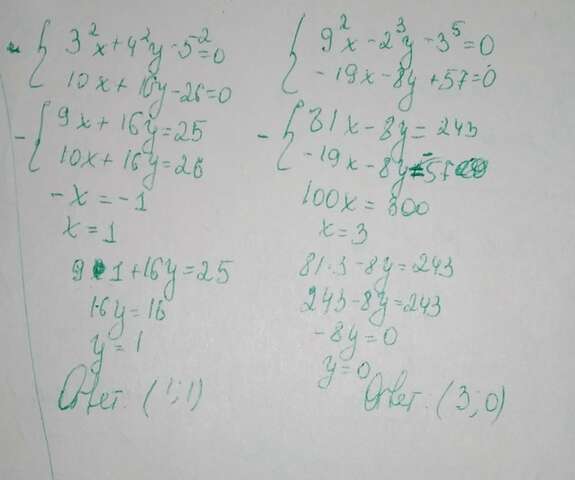 3²x+4²y-5²=0
10x+16y-26=0
9x+16y=25
10x+16y=26
-x=-1
x=1
9·1+16y=25
16y=16
y=1
Ответ: (1;1)
9²x-2³y-3⁵=0
-19x-8y+57=0
81x-8y=243
-19x-8y=-57
100x=300
x=3
81·3-8y=243
243-8y=243
-8y=0
y=0
Ответ: (3;0)